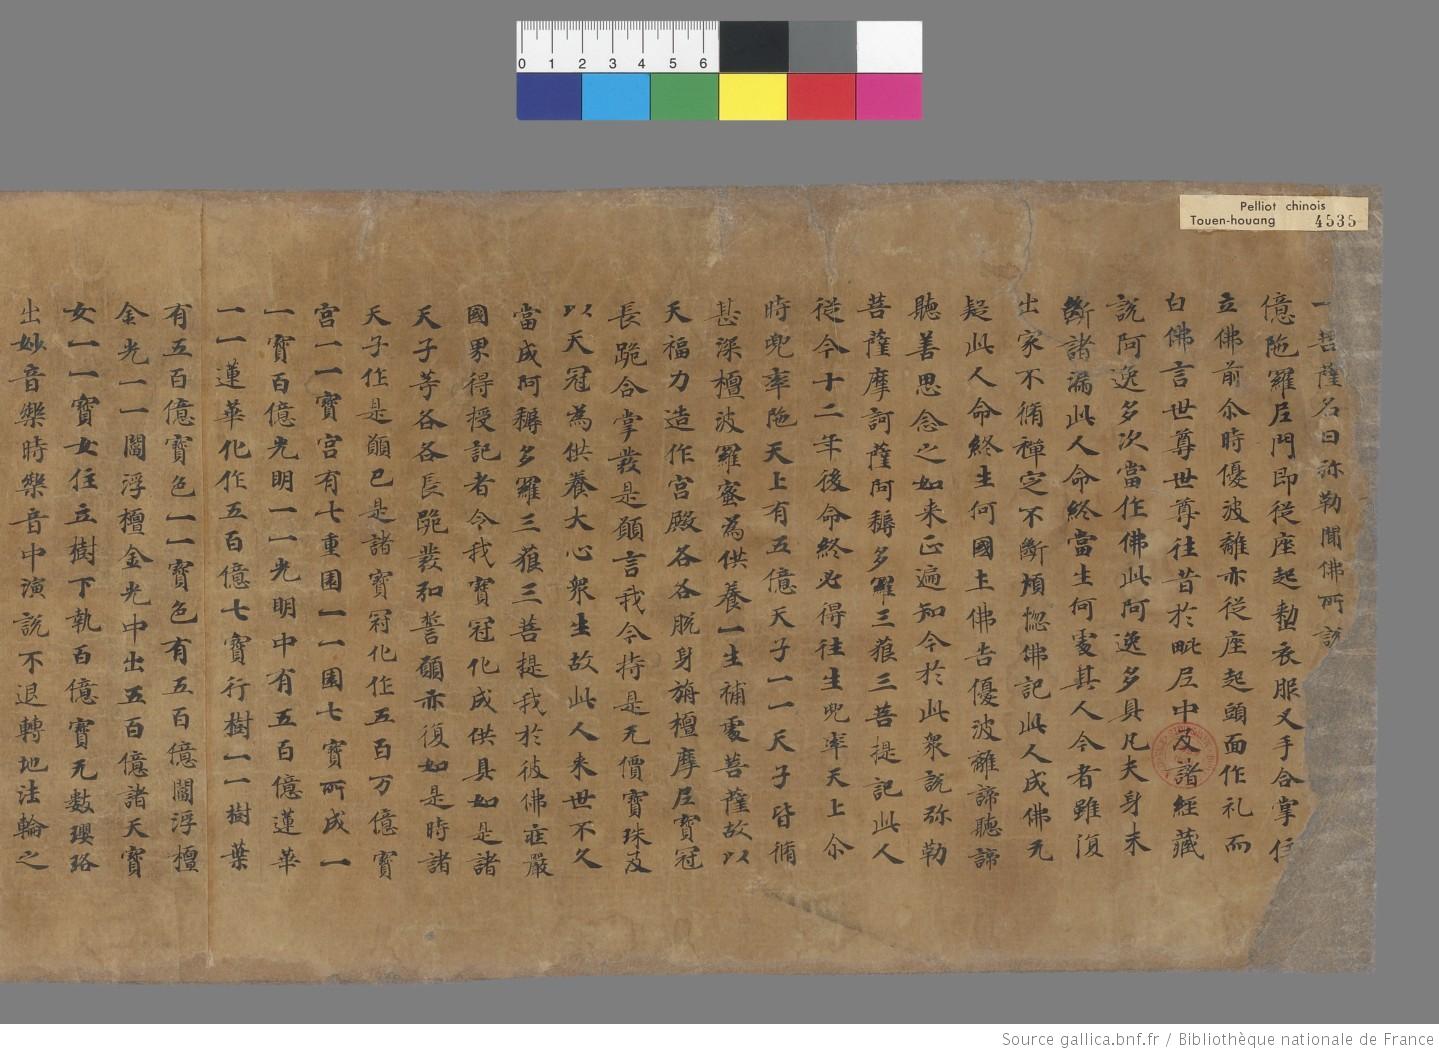 0 1 2 3 4 5 6
Pelliot chinois
Touen-houang 4535
一菩薩名曰弥勒聞佛所說
億陁羅尼門即従座起整衣服叉手合掌住
立佛前尒時優波離亦従座起頭面作礼而
白佛言世尊世尊往昔於毗尼中及諸經藏
說阿逸多次當作佛此阿逸多具凡夫身未
斷諸漏此人命終當生何處其人今者雖復
出家不脩禪定不斷煩惱佛記此人成佛无
疑此人命終生何國土佛告優波離諦聽諦
聽善思念之如来正遍知今於此衆說弥勒
菩薩摩訶薩阿耨多羅三藐三菩提記此人
従今十二年後命終必得往生兜率天上尒
時兜率陁天上有五億天子一一天子皆脩
甚深檀波羅蜜為供養一生補處菩薩故以
天福力造作宮殿各各脫身旃檀摩尼寶冠
長跪合掌發是願言我今持是无價寶珠及
以天冠為供養大心衆生故此人来世不久
當成阿耨多羅三藐三菩提我於彼佛莊嚴
國界得授記者令我寶冠化成供具如是諸
天子等各各長跪發和誓願亦復如是時諸
天子作是願已是諸寶冠化作五百万億寶
宮一一寶宮有七重園一一園七寶所成一
一寶百億光明一一光明中有五百億蓮華
一一蓮華化作五百億七寶行樹一一樹葉
有五百億寶色一一寶色有五百億閻浮檀
金光一一閻浮檀金光中出五百億諸天寶
女一一寶女住立樹下執百億寶无數瓔珞
出妙音樂時樂音中演說不退轉地法輪之
Source gallica.bnf.fr / Bibliothèque nationale de France